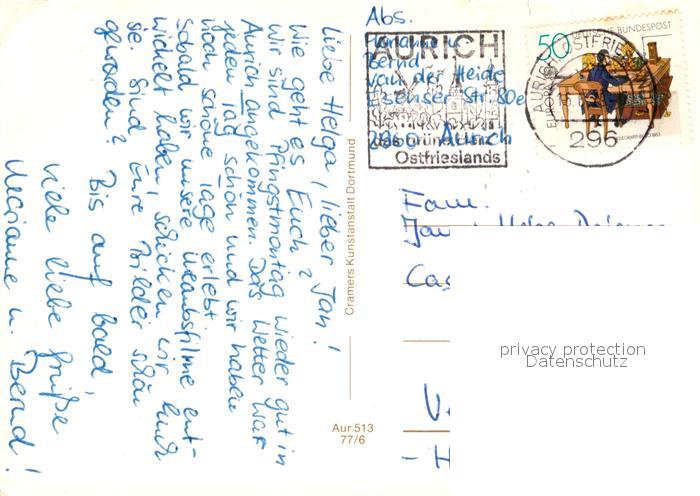 Liebe Helga, lieber Jan!
Wie geht es Euch?
Wir sind Pfingstmontag wieder gut in
Aurich angekommen. Das Wetter war
jeden Tag schön und wir haben
noch schöne Tage erlebt.
Sobald wir unsere Urlaubsfilme ent-
wickelt haben, schicken wir Euch
sie. Sind Eure Bilder schön
geworden? Bis auf bald,
viele liebe Grüße
Marianne u. Bernd!
Cramers Kunstanstalt Dortmund
Aur 513
77/6
Abs.
Marianne u.
Bernd
van der Heide
Esenser Str. 80e
2960 Aurich
AURICH
das Gründ
Ostfrieslands
50
DEUTSCHE BUNDESPOST
AURICH, OSTFRIESL
296
Fam.
Jan
privacy protection
Datenschutz